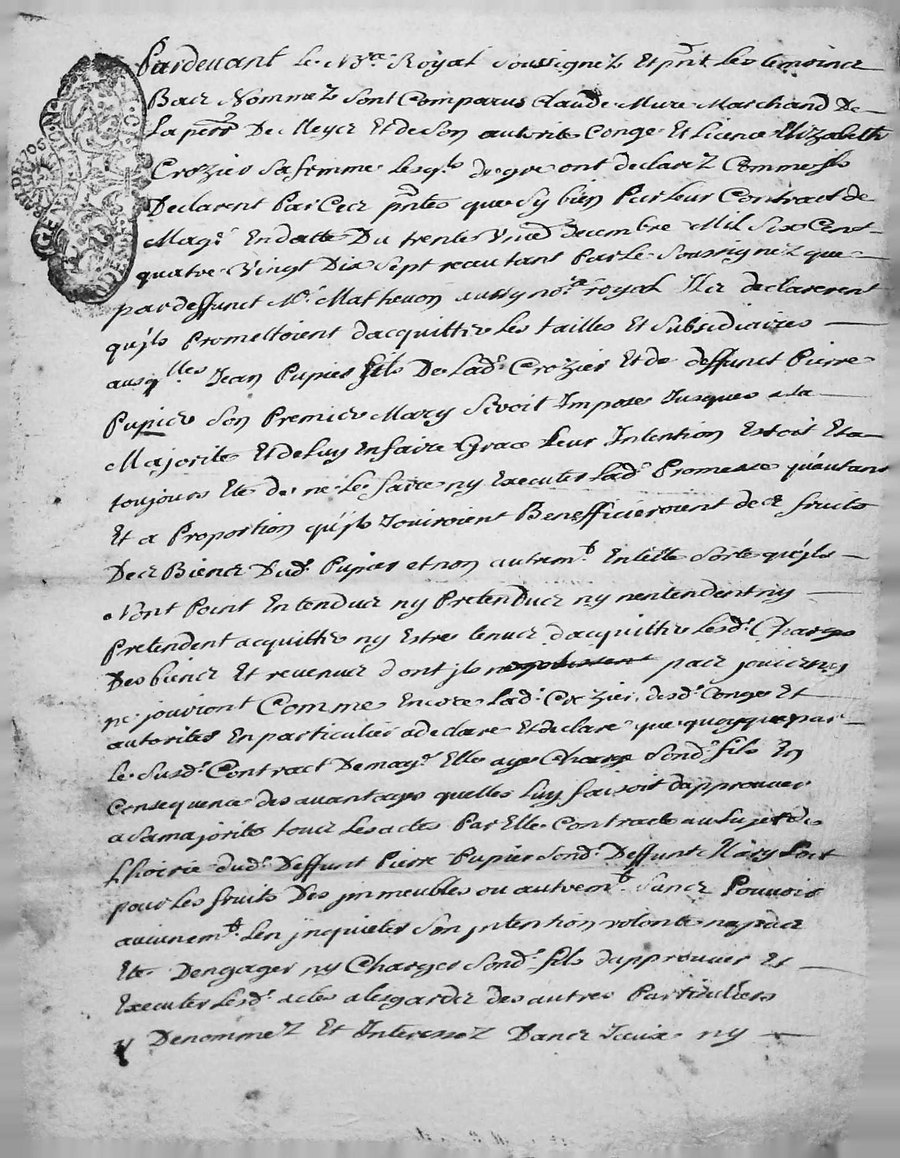 Pardevant Le No.re Royal Soussignez Et pnt. Les temoincz
Bacz Nommez Sont Comparus Claude Mure Marchand De
La per.e De Meycz Et de Son autorite Conge Et Licence Elizabeth
Crozier Sa femme Lesq.ls de gre ont declarez Comme jls
Declarent Par Cecz pntes que Sy bien Par Leur Contract de
Mag.e En datte Du trente Decembre Mil Six Cent
quatre Vingt Dix Sept receu tant Par Le Soussignez que
par deffunct M.e Mathevon aussy no.re royal Ilcz declarerent
qujls Promettoient dacquitter Les tailles Et Subsidiaires
ausq.lles Jean Pupier fils De Lad. Crozier Et de deffunct Pierre
Pupier Son Premier Mary Seroit Impose Jusques a la
Majorite Et de Luy En faire Grace Leur Intention Estoit Et a
toujours Ete de ne Le faire ny Executer Lad. Promesse qu'autant
Et a Proportion qujls Jouiroient Benefficieroient de cz fruicts
Decz Biencz Dud. Pupier et non autrem.t En telle Sorte qujls
Nont Point Entenducz ny Pretenducz ny nentendent ny
Pretendent acquitter ny Estre tenucz dacquitter Lesd. Charges
Des biencz Et revenucz dont jls pacz jouicz ny
ne jouiront Comme Encore Lad. Crozier desd. Conge Et
autorites En particulier a declare Et declare que quoyque par
Le Susd. Contract De mag.e Elle aye Charge Sond. fils En
Consequence des avantages quelles Luy faisoit dapprouver
a Sa majorite toucz Les actes Par Elle Contracte au Sujet de
Lhoirie dud. Deffunt Pierre Pupier Sond. Deffunt Mary Soit
pour Les fruits Des jmmeubles ou autrem.t Sancz Pouvoir
aucunem.t Len jnquieter Son jntention volonte na pacz
Ete Dengager ny Charger Sond. fils dapprouver Et
Executer Lesd. actes a lesgardz des autres Particuliers
y Denommez Et Interessez Dancz Jceux ny